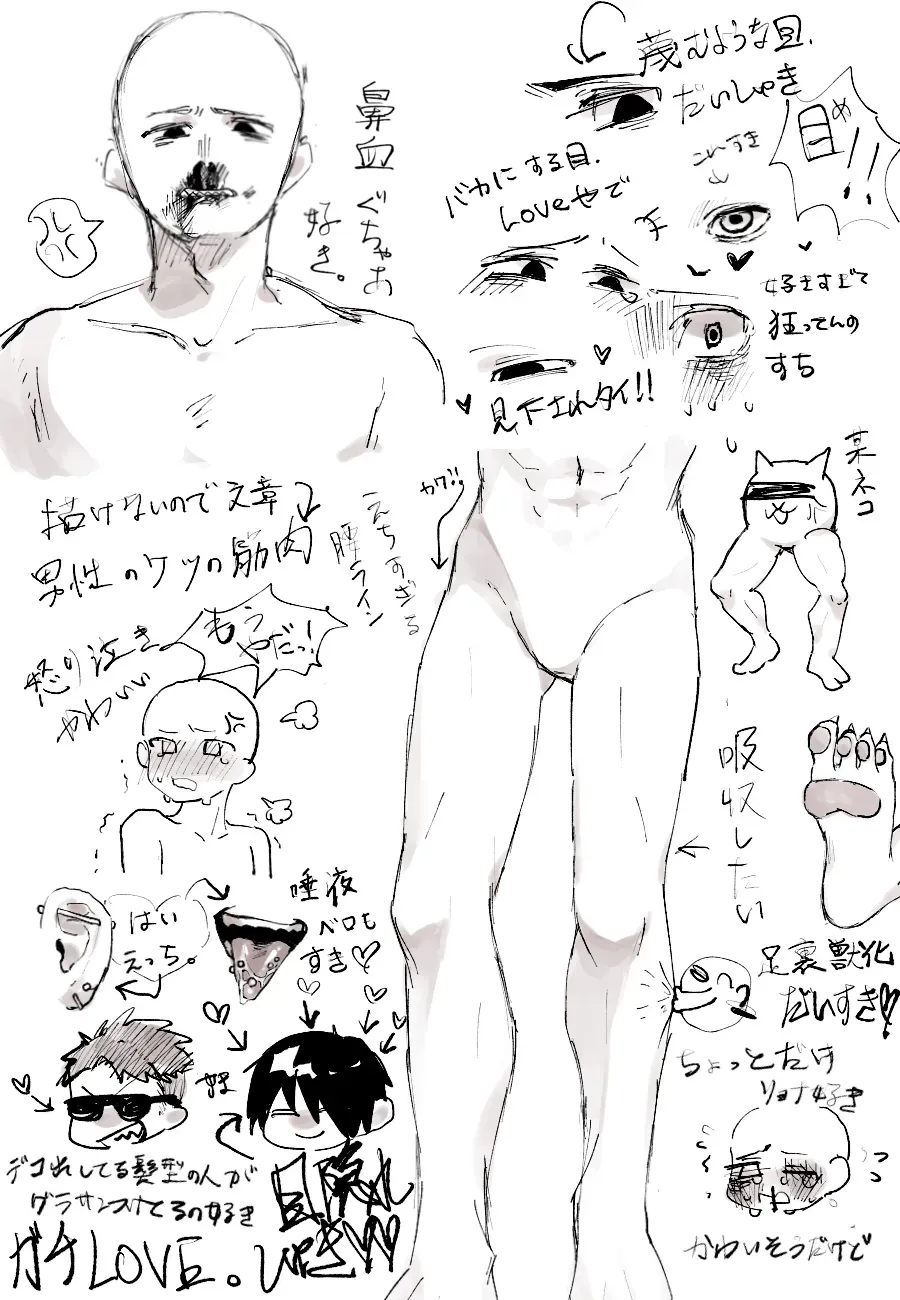 鼻血ぐちゃあ
好き。
蔑むような目、
だいしゅき
目め!!
これすき
バカにする目、
Loveやで
好きすぎて
狂ってんの
すち
見下されタイ!!
描けないので文章
男性のケツの筋肉
えちすぎる
腰ライン
某ネコ
怒り泣き
かわいい
もう
やだっ!
吸収したい
はい
えっち。
唾液
ベロも
すき♡
足裏獣化
だいすき♡
ちょっとだけ
リョナ好き
かわいそうだけど
デコ出してる髪型の人が
グラサンつけとるの好き
ガチLOVE。
目隠れ